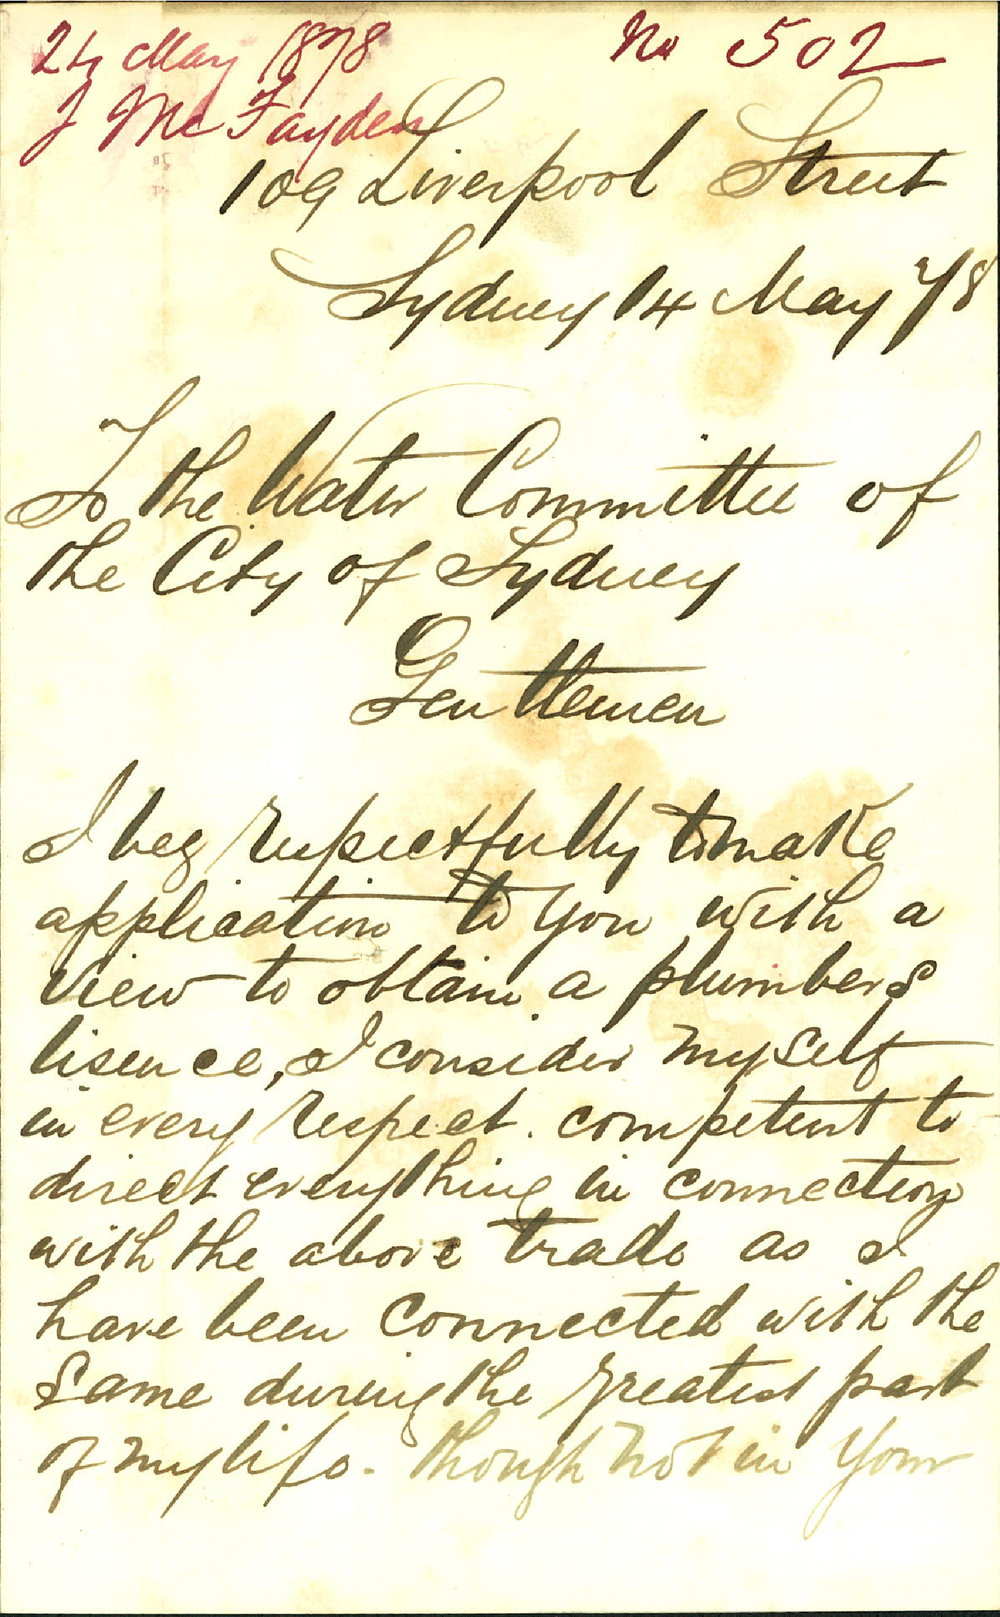 24 May 1878
No 502
J McFayden
109 Liverpool Street
Sydney 14 May 78
To the Water Committee of
the City of Sydney
Gentlemen
I beg respectfully to make
application to you with a
view to obtain a plumbers
lisence, I consider myself
in every respect. competent to
direct everything in connection
with the above trade as I
have been connected with the
same during the greatest part
of my life. though not in your